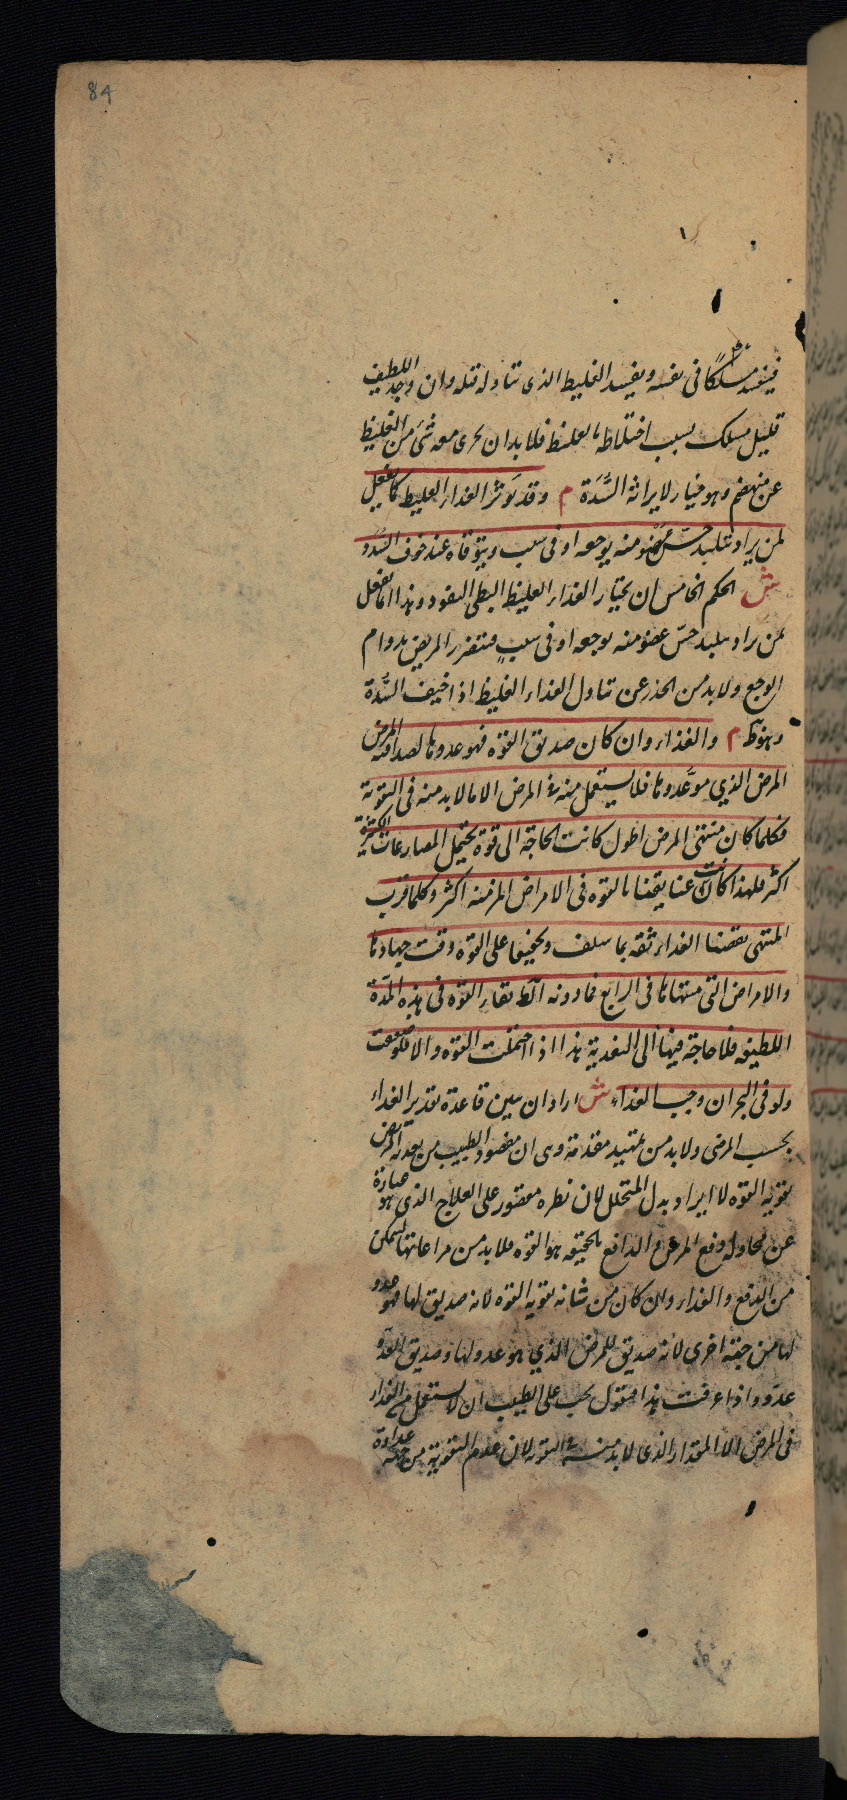 84
فيفسد مسلكًا فى نفسه ويفسد الغليظ الذى تناوله قبله وان وجد اللطيف
قليل مسلك بسبب اختلاطه بالغليظ فلا بد ان يجرى معه شئ من الغليظ
عن منهضم وهو ضار لايراثه السُّدَة م وقد نوثر الغذاء الغليظ كما نفعل
لمن يراد تبليد حسّ عضو منه يوجعه او فى سبب ويتوقاه عند خوف السُّدد
ش الحكم الخامس ان يختار الغذاء الغليظ البطى النفود وهذا انما نفعل
لمن يراد تبليد حسّ عضو منه يوجعه او فى سببٍ فيتضرر المريض بدوام
الوجع ولا بد من الحذر عن تناول الغذاء الغليظ اذا خيف السُّدة
وهو ظ م والغذاء وان كان صديق القوة فهو عدو لها لصداقته المرض
المرض الذي هو عدوها فلا يستعمل منه فى المرض الا ما لا بد منه فى التقوية
فكلما كان منتهى المرض اطول كانت الحاجة الى قوة يحتمل المصارعات الكثيرة
اكثر فلهذا كانت عنايتنا بالقوة فى الامراض المزمنة اكثر وكلما قرب
المنتهى نقصنا الغذاء ثقة بما سلف وتخفيفا على القوة وقت جهادها
والامراض التى منتهاها فى الرابع فما دونه الظ بقاء القوة فى هذه المدّة
اللطيفه فلا حاجة فيها الى التغدية هذا اذا احتملت القوة والا فلو ضعفت
ولو فى البحران وجب الغذاء ش اراد ان يبين قاعدة تقدير الغذاء
بحسب المرض ولا بد من تمهيد مقدمة وهى ان مقصود الطبيب من تغدية المرض
تقوية القوه لا ايراد بدل المتحلل لان نظره مقصور على العلاج الذى هو عبارة
عن محاولة دفع المرض والدافع بالحقيقه هو القوه فلا بد من مراعاتها ليتمكن
من الدفع والغذاء وان كان من شانه تقوية القوه لانه صديق لها فهو عدو
لها من جهة اخرى لانه صديق للمرض الذي هو عدو لها وصديق العدو
عدو واذا عرفت هذا فنقول يجب على الطبيب ان لا يستعمل من الغذاء
فى المرض الا المقدار الذى لا بد منه فى القوة لان عدم التقوية من جهة عداوة